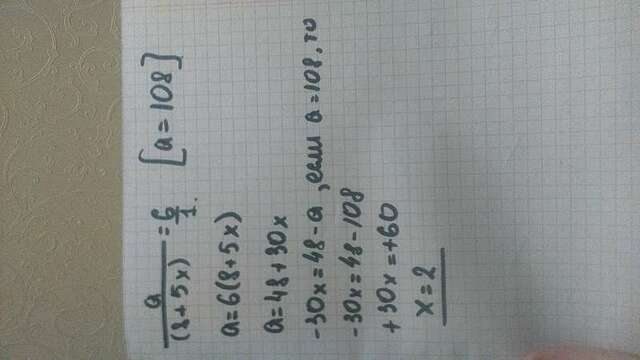 a/(8+5x) = 6/1. [a=108]
a=6(8+5x)
a=48+30x
-30x=48-a, если a=108, то
-30x=48-108
+30x=+60
x=2